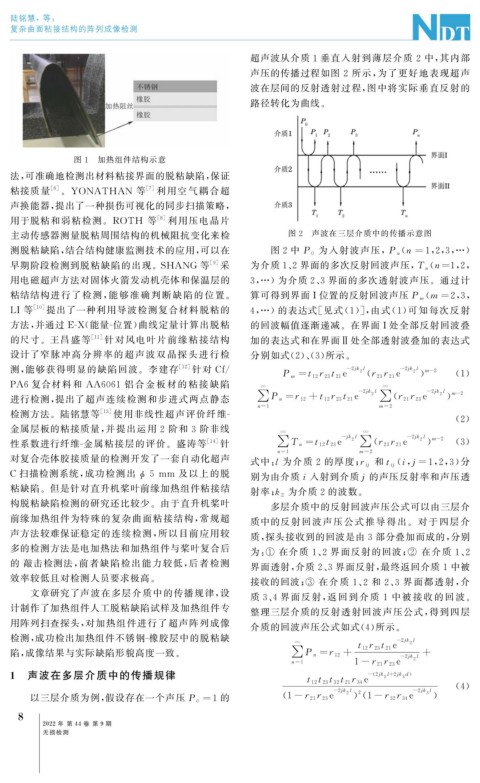 陆铭慧，等：
复杂曲面粘接结构的阵列成像检测
NDT
不锈钢
橡胶
加热阻丝
橡胶
图 1 加热组件结构示意
法,可准确地检测出材料粘接界面的脱粘缺陷,保证
粘接质量[6]。YONATHAN 等[7]利用空气耦合超
声换能器,提出了一种损伤可视化的同步扫描策略,
用于脱粘和弱粘检测。ROTH 等[8]利用压电晶片
主动传感器测量脱粘周围结构的机械阻抗变化来检
测脱粘缺陷,结合结构健康监测技术的应用,可以在
早期阶段检测到脱粘缺陷的出现。SHANG 等[9]采
用电磁超声方法对固体火箭发动机壳体和保温层的
粘结结构进行了检测,能够准确判断缺陷的位置。
LI 等[10]提出了一种利用导波检测复合材料脱粘的
方法,并通过 E-X(能量-位置)曲线定量计算出脱粘
的尺寸。王昌盛等[11]针对风电叶片前缘粘接结构
设计了窄脉冲高分辨率的超声波双晶探头进行检
测,能够获得明显的缺陷回波。李建存[12]针对 Cf/
PA6 复合材料和 AA6061 铝合金板材的粘接缺陷
进行检测,提出了超声连续检测和步进式两点静态
检测方法。陆铭慧等[13]使用非线性超声评价纤维-
金属层板的粘接质量,并提出运用 2 阶和 3 阶非线
性系数进行纤维-金属粘接层的评价。盛涛等[14]针
对复合壳体胶接质量的检测开发了一套自动化超声
C 扫描检测系统,成功检测出 φ 5 mm 及以上的脱
粘缺陷。但是针对直升机桨叶前缘加热组件粘接结
构脱粘缺陷检测的研究还比较少。由于直升机桨叶
前缘加热组件为特殊的复杂曲面粘接结构,常规超
声方法较难保证稳定的连续检测,所以目前应用较
多的检测方法是电加热法和加热组件与桨叶复合后
的 敲击检测法,前者缺陷检出能力较低,后者检测
效率较低且对检测人员要求极高。
文章研究了声波在多层介质中的传播规律,设
计制作了加热组件人工脱粘缺陷试样及加热组件专
用阵列扫查探头,对加热组件进行了超声阵列成像
检测,成功检出加热组件不锈钢-橡胶层中的脱粘缺
陷,成像结果与实际缺陷形貌高度一致。
1 声波在多层介质中的传播规律
以三层介质为例,假设存在一个声压 P₀=1 的
超声波从介质 1 垂直入射到薄层介质 2 中,其内部
声压的传播过程如图 2 所示,为了更好地表现超声
波在层间的反射透射过程,图中将实际垂直反射的
路径转化为曲线。
P₀
介质1 P₁ P₂ P₃ Pₙ
界面Ⅰ
介质2 ……
界面Ⅱ
介质3 T₁ T₂ Tₙ
图 2 声波在三层介质中的传播示意图
图 2 中 P₀ 为入射波声压, Pₙ(n =1,2,3,…)
为介质 1、2 界面的多次反射回波声压, Tₙ(n=1,2,
3,…) 为介质 2、3 界面的多次透射波声压。通过计
算可得到界面Ⅰ位置的反射回波声压 Pₘ(m =2,3,
4,…) 的表达式[见式(1)],由式(1)可知每次反射
的回波幅值逐渐递减。在界面Ⅰ处全部反射回波叠
加的表达式和在界面Ⅱ处全部透射波叠加的表达式
分别如式(2)、(3)所示。
Pₘ = t₁₂r₂₃t₂₁e^(−2jk₂l)(r₂₁r₂₃e^(−2jk₂l))^(m−2) (1)
∑_(n=1)^∞ Pₙ = r₁₂ + t₁₂r₂₃t₂₁e^(−2jk₂l) ∑_(m=2)^∞ (r₂₁r₂₃e^(−2jk₂l))^(m−2)
(2)
∑_(n=1)^∞ Tₙ = t₁₂t₂₃e^(−jk₂l) ∑_(m=2)^∞ (r₂₃r₂₁e^(−2jk₂l))^(m−2) (3)
式中:l 为介质 2 的厚度;rᵢⱼ 和 tᵢⱼ (i,j=1,2,3)分
别为由介质 i 入射到介质 j 的声压反射率和声压透
射率;k₂ 为介质 2 的波数。
多层介质中的反射回波声压公式可以由三层介
质中的反射回波声压公式推导得出。对于四层介
质,探头接收到的回波是由 3 部分叠加而成的,分别
为:① 在介质 1、2 界面反射的回波;② 在介质 1、2
界面透射,介质 2、3 界面反射,最终返回介质 1 中被
接收的回波;③ 在介质 1、2 和 2、3 界面都透射,介
质 3、4 界面反射,返回到介质 1 中被接收的回波。
整理三层介质的反射透射回波声压公式,得到四层
介质的回波声压公式如式(4)所示。
∑_(n=1)^∞ Pₙ = r₁₂ + t₁₂r₂₃t₂₁e^(−2jk₂l) / (1 − r₂₁r₂₃e^(−2jk₂l)) +
t₁₂t₂₃t₃₂t₂₁r₃₄e^(−(2jk₂l+2jk₃d)) / ((1 − r₂₁r₂₃e^(−2jk₂l))²(1 − r₃₂r₃₄e^(−2jk₃l))) (4)
8
2022 年 第 44 卷 第 9 期
无损检测